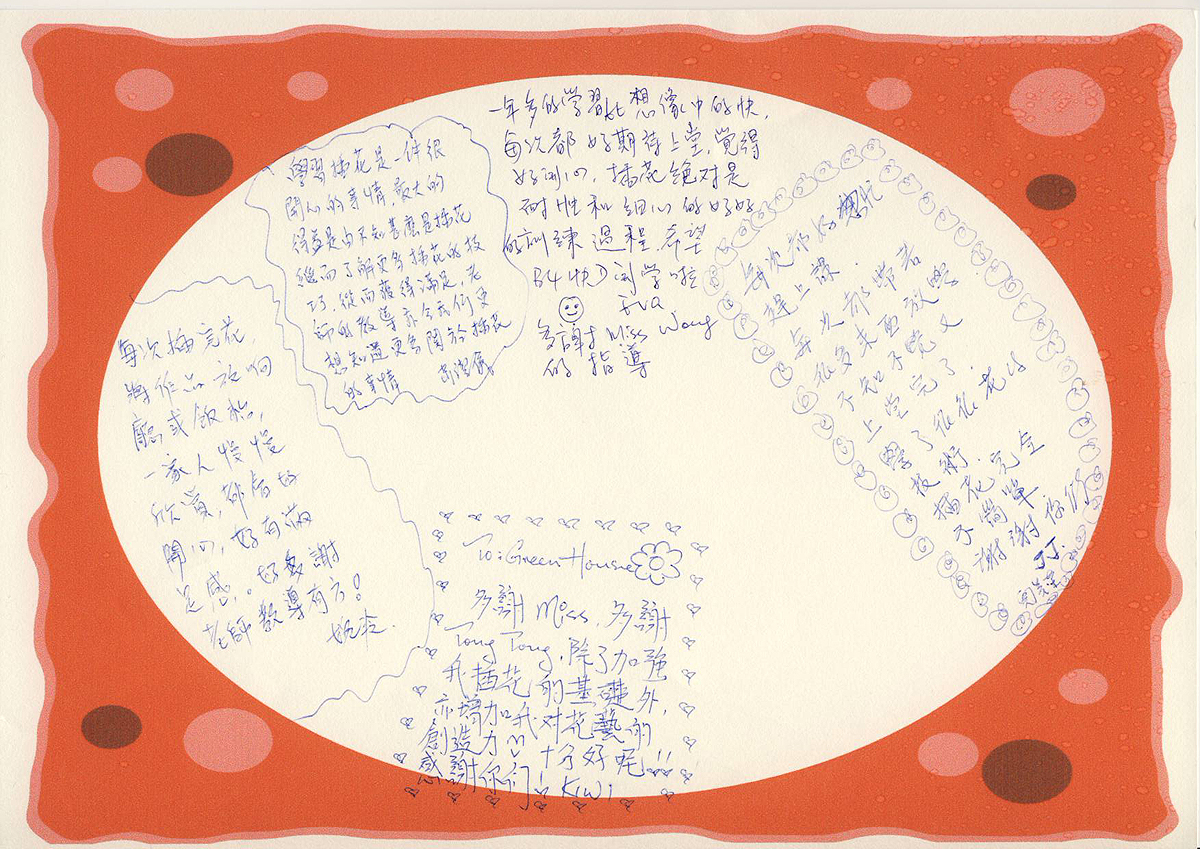 一年多的學習比想像中的快,
每次都好期待上堂,覺得
好開心,插花絕对是
耐性和細心的好好
的訓練過程,希望
B4 快D 開学啦
Eva
多謝 Miss Wong
的指導
學習插花是一件很
開心的事情最大的
得益是由不知甚麼是插花
繼而了解更多插花的技
巧,從而獲得滿足,老
師的教導亦令我們更
想知道更多關於插花
的事情
每次插完花,
將作品放响
廳或飯枱,
一家人慢慢
欣賞,都會好
開心,好有滿
足感。好多謝
老師教導有方!
每次都好
趕上課.
每次都帶著
很多東西放學
不知不覺又
上堂完了.
學了很多花的
技術.
插花完全
不簡單
謝謝你們
To: Green House
多謝 Miss, 多謝
Tong Tong, 除了加強
我插花的基礎外,
亦增加我对花藝的
創造力 十分好呢!!!
感謝你們! Kiwi